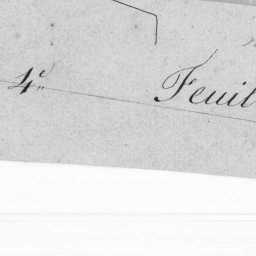 4e Feuil